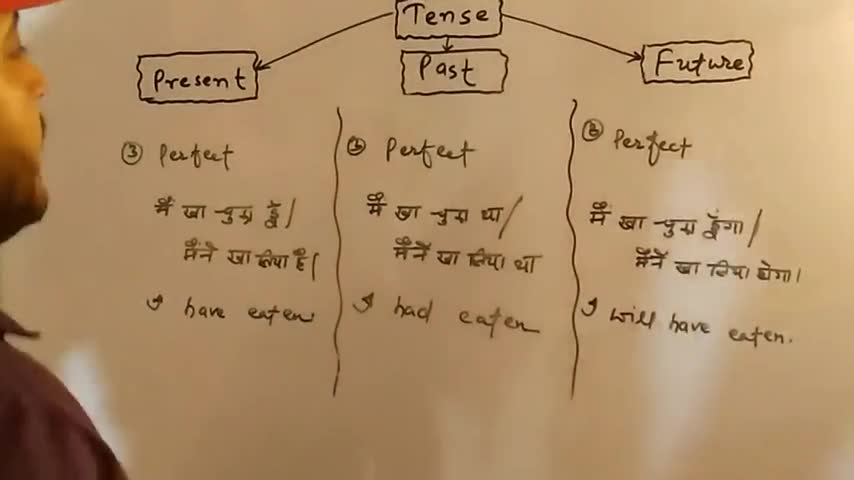 Tense
Present
Past
Future
③ Perfect
मैं खा चुका हूँ/
मैंने खा लिया है।
I have eaten.
③ Perfect
मैं खा चुका था/
मैंने खा लिया था
I had eaten
③ Perfect
मैं खा चुका हूँगा/
मैंने खा लिया होगा।
I will have eaten.